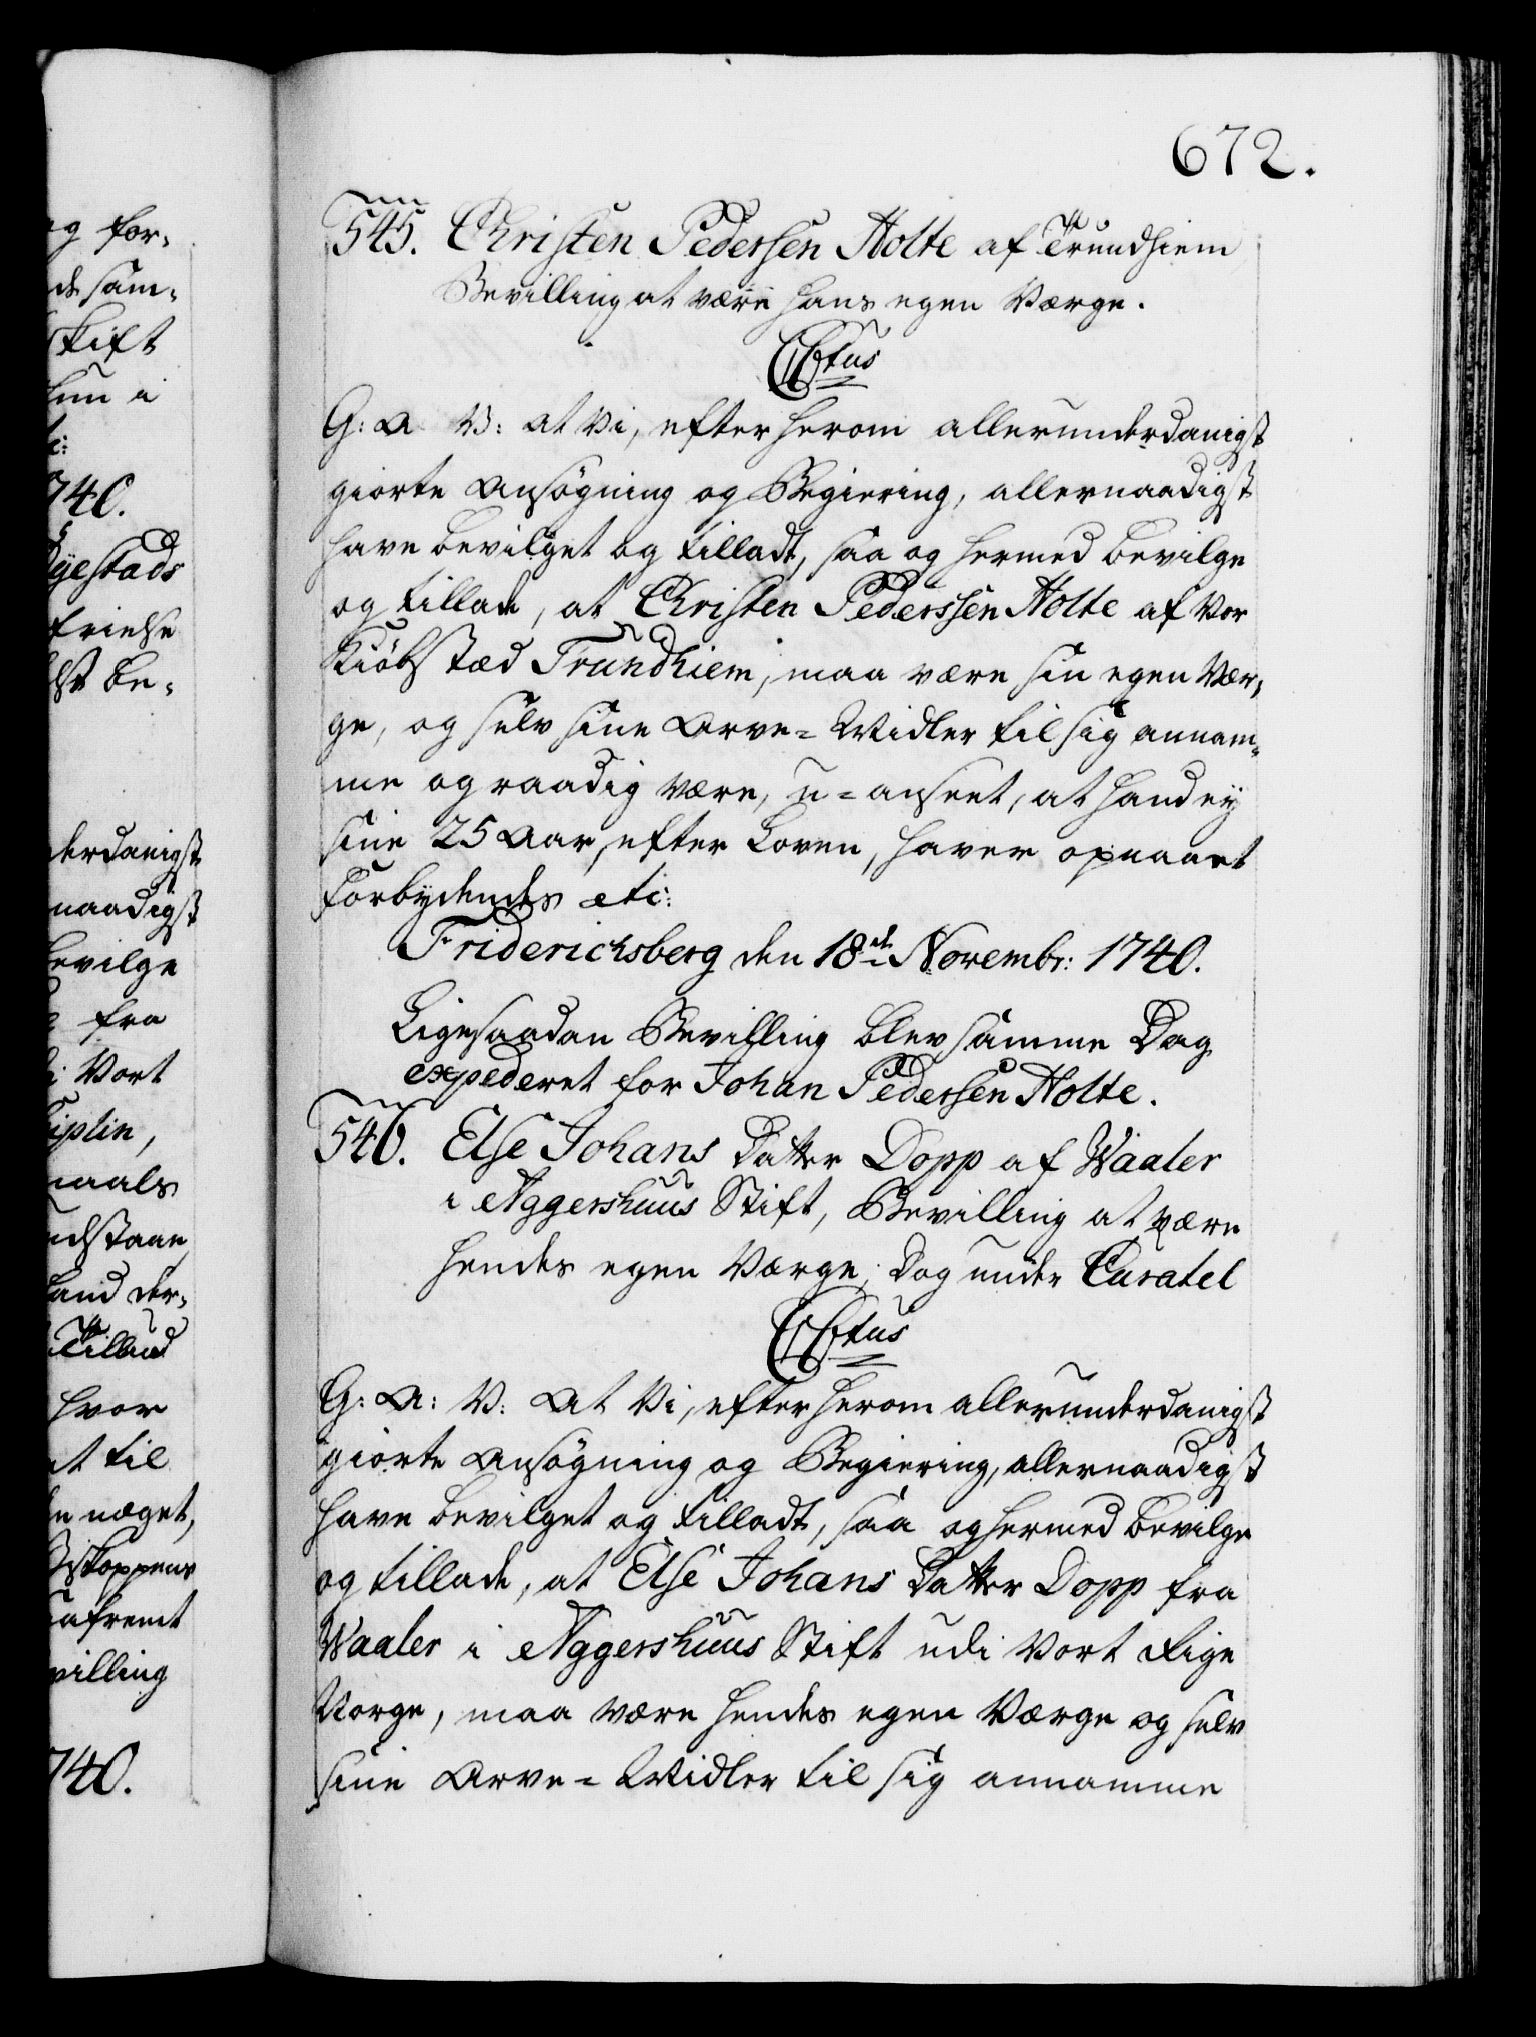 672.
545. Christen Pedersen Holte af Trundhiem
Bevilling at være hans egen Værge.
CCtus
G: A V: at Vi, efter herom allerunderdanigst
giorte Ansøgning og Begiering, allernaadigst
have bevilget og tilladt, saa og hermed bevilge
og tillade, at Christen Pederssen Holte af Vor
Kiøbstæd Trundhiem, maa være sin egen Vær-
ge, og selv sine Arve-Midler til sig annam-
me og raadig være, u-anseet, at hand ey
sine 25 Aar, efter Loven, haver opnaaet
Forbydendes etc:
Friderichsberg den 18de Novembr: 1740.
Ligesaadan Bevilling blev samme Dag
expederet for Johan Pedersen Holte.
546. Else Johans Datter Dopp af Waaler
i Aggershuus Stift, Bevilling at være
hendes egen Værge, dog under Curatel
CCtus
G: A: V: At Vi, efter herom allerunderdanigst
giorte Ansøgning og Begiering, allernaadigst
have bevilget og tilladt, saa og hermed bevilge
og tillade, at Else Johans Datter Dopp fra
Waaler i Aggershuus Stift udi Vort Rige
Norge, maa være hendes egen Værge og selv
sine Arve-Midler til sig annamme